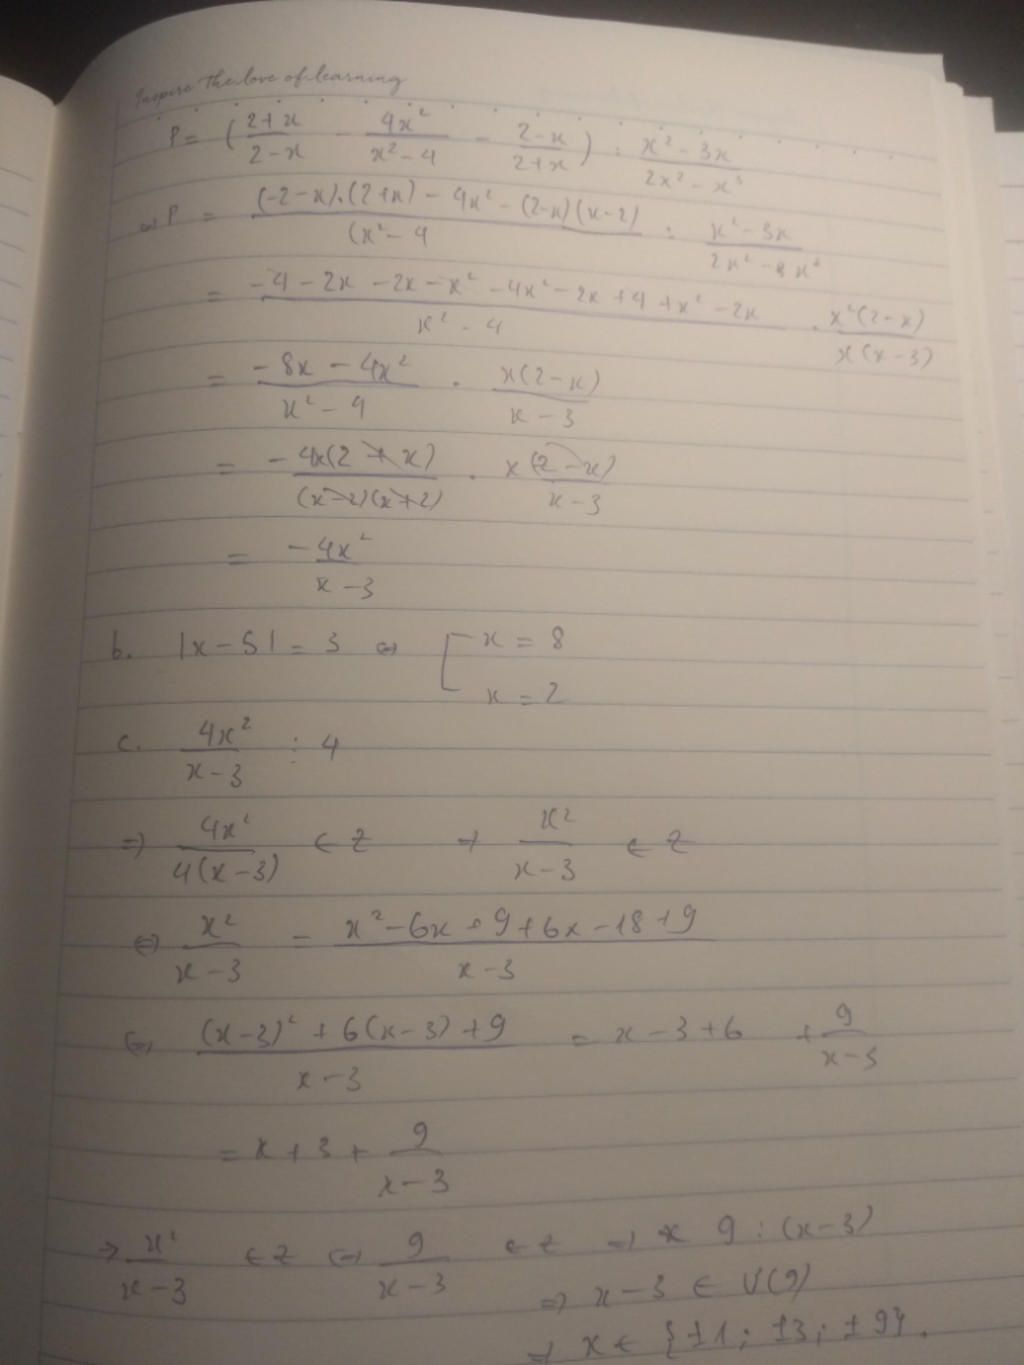 Inspire the love of learning
P = (\frac{2+x}{2-x} - \frac{4x^2}{x^2-4} - \frac{2-x}{2+x}) : \frac{x^2-3x}{2x^2-x^3}
⇔ P = \frac{(-2-x).(2+x) - 4x^2 - (2-x)(x-2)}{(x^2-4} : \frac{x^2-3x}{2x^2-x^3}
= \frac{-4-2x-2x-x^2-4x^2-2x+4+x^2-2x}{x^2-4} . \frac{x^2(2-x)}{x(x-3)}
= \frac{-8x-4x^2}{x^2-4} . \frac{x(2-x)}{x-3}
= \frac{-4x(2+x)}{(x-2)(x+2)} . \frac{x(2-x)}{x-3}
= \frac{-4x^2}{x-3}
b. |x-5| = 3 ⇔ [ x = 8
x = 2
c. \frac{4x^2}{x-3} ⋮ 4
⇒ \frac{4x^2}{4(x-3)} ∈ Z → \frac{x^2}{x-3} ∈ Z
⇔ \frac{x^2}{x-3} = \frac{x^2-6x+9+6x-18+9}{x-3}
⇔ \frac{(x-3)^2+6(x-3)+9}{x-3} = x-3+6 + \frac{9}{x-3}
= x+3+ \frac{9}{x-3}
→ \frac{x^2}{x-3} ∈ Z ⇔ \frac{9}{x-3} ∈ Z ⇒ 9 ⋮ (x-3)
⇒ x-3 ∈ Ư(9)
→ x ∈ {±1; ±3; ±9}.